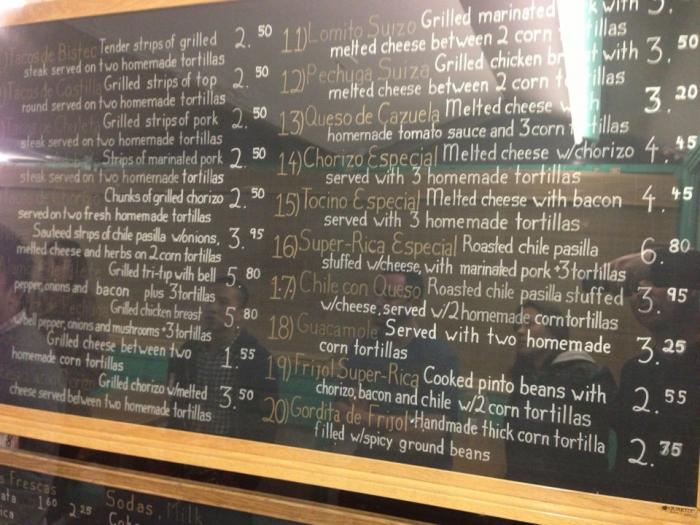 Tacos de Bistec Tender strips of grilled 2.50
steak served on two homemade tortillas
Tacos de Costilla Grilled strips of top 2.50
round served on two homemade tortillas
Grilled strips of pork 2.50
steak served on two homemade tortillas
Strips of marinated pork 2.50
steak served on two homemade tortillas
Chunks of grilled chorizo 2.50
served on two fresh homemade tortillas
Sauteed strips of chile pasilla w/onions, 3.95
melted cheese and herbs on 2 corn tortillas
Grilled tri-tip with bell 5.80
pepper, onions and bacon plus 3 tortillas
Grilled chicken breast 5.80
w/bell pepper, onions and mushrooms + 3 tortillas
Grilled cheese between two 1.55
homemade corn tortillas
Grilled chorizo w/melted 3.50
cheese served between two homemade tortillas
11) Lomito Suizo Grilled marinated with 3.50
melted cheese between 2 corn tillas
12) Pechuga Suiza Grilled chicken br with 3.20
melted cheese between 2 corn tillas
13) Queso de Cazuela Melted cheese
homemade tomato sauce and 3 corn tillas 4.45
14) Chorizo Especial Melted cheese w/chorizo
served with 3 homemade tortillas
15) Tocino Especial Melted cheese with bacon 4.45
served with 3 homemade tortillas
16) Super-Rica Especial Roasted chile pasilla 6.80
stuffed w/cheese, with marinated pork +3 tortillas
17) Chile con Queso Roasted chile pasilla stuffed 3.95
w/cheese, served w/2 homemade corn tortillas
18) Guacamole Served with two homemade 3.25
corn tortillas
19) Frijol Super-Rica Cooked pinto beans with 2.55
chorizo, bacon and chile w/2 corn tortillas
20) Gordita de Frijol Handmade thick corn tortilla 2.75
filled w/spicy ground beans
s Frescas
ata 1.60 2.25
ica
Sodas, Milk
QUARTET